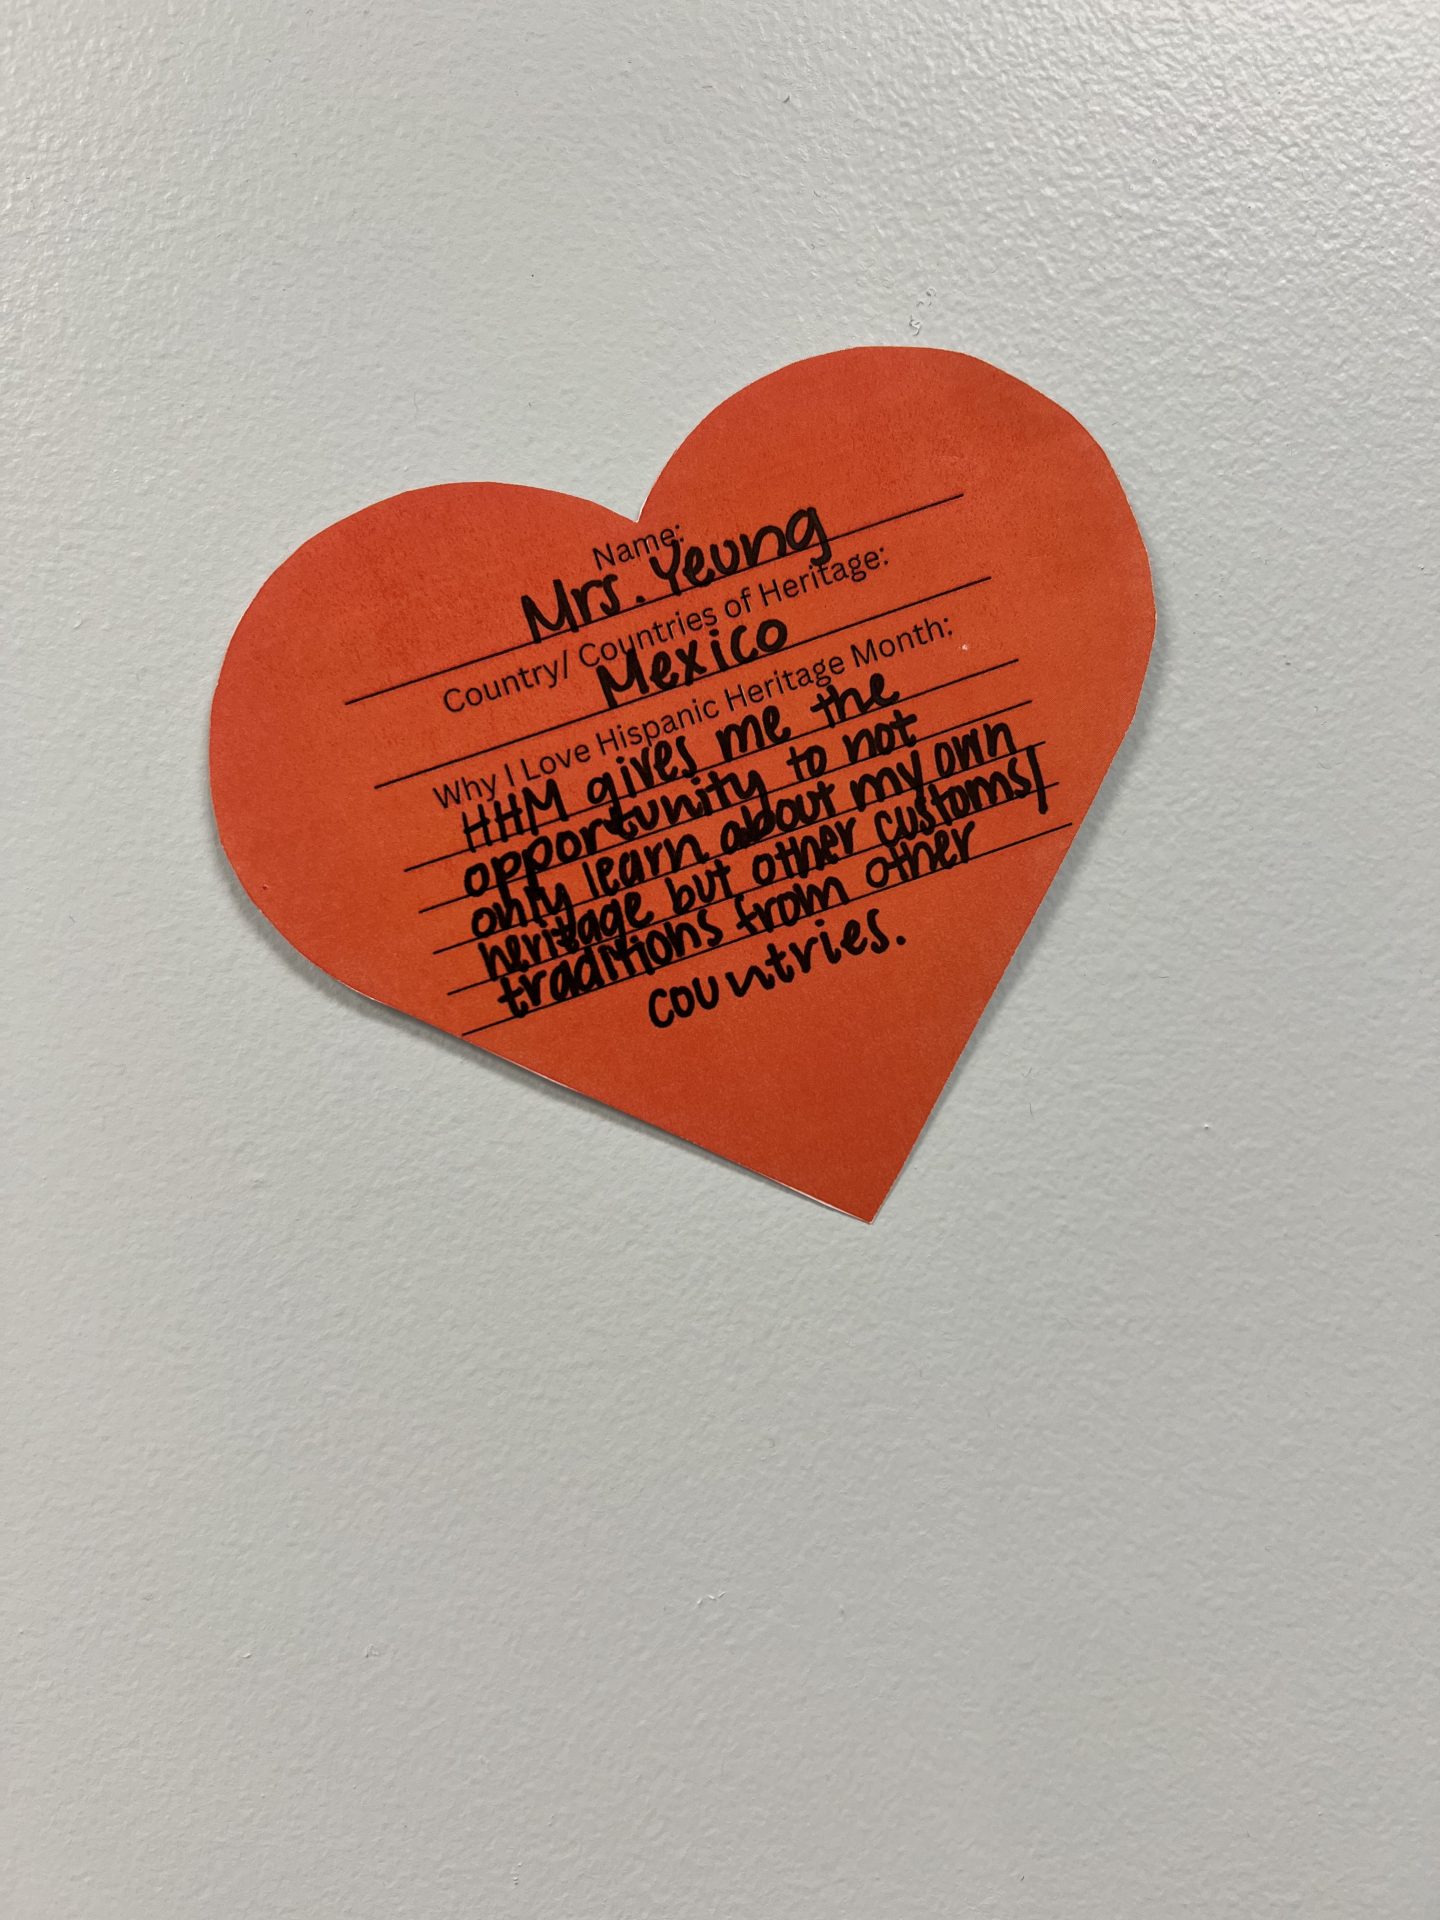 Name:
Mrs. Yeung
Country/ Countries of Heritage:
Mexico
Why I Love Hispanic Heritage Month:
HHM gives me the
opportunity to not
only learn about my own
heritage but other customs/
traditions from other
countries.